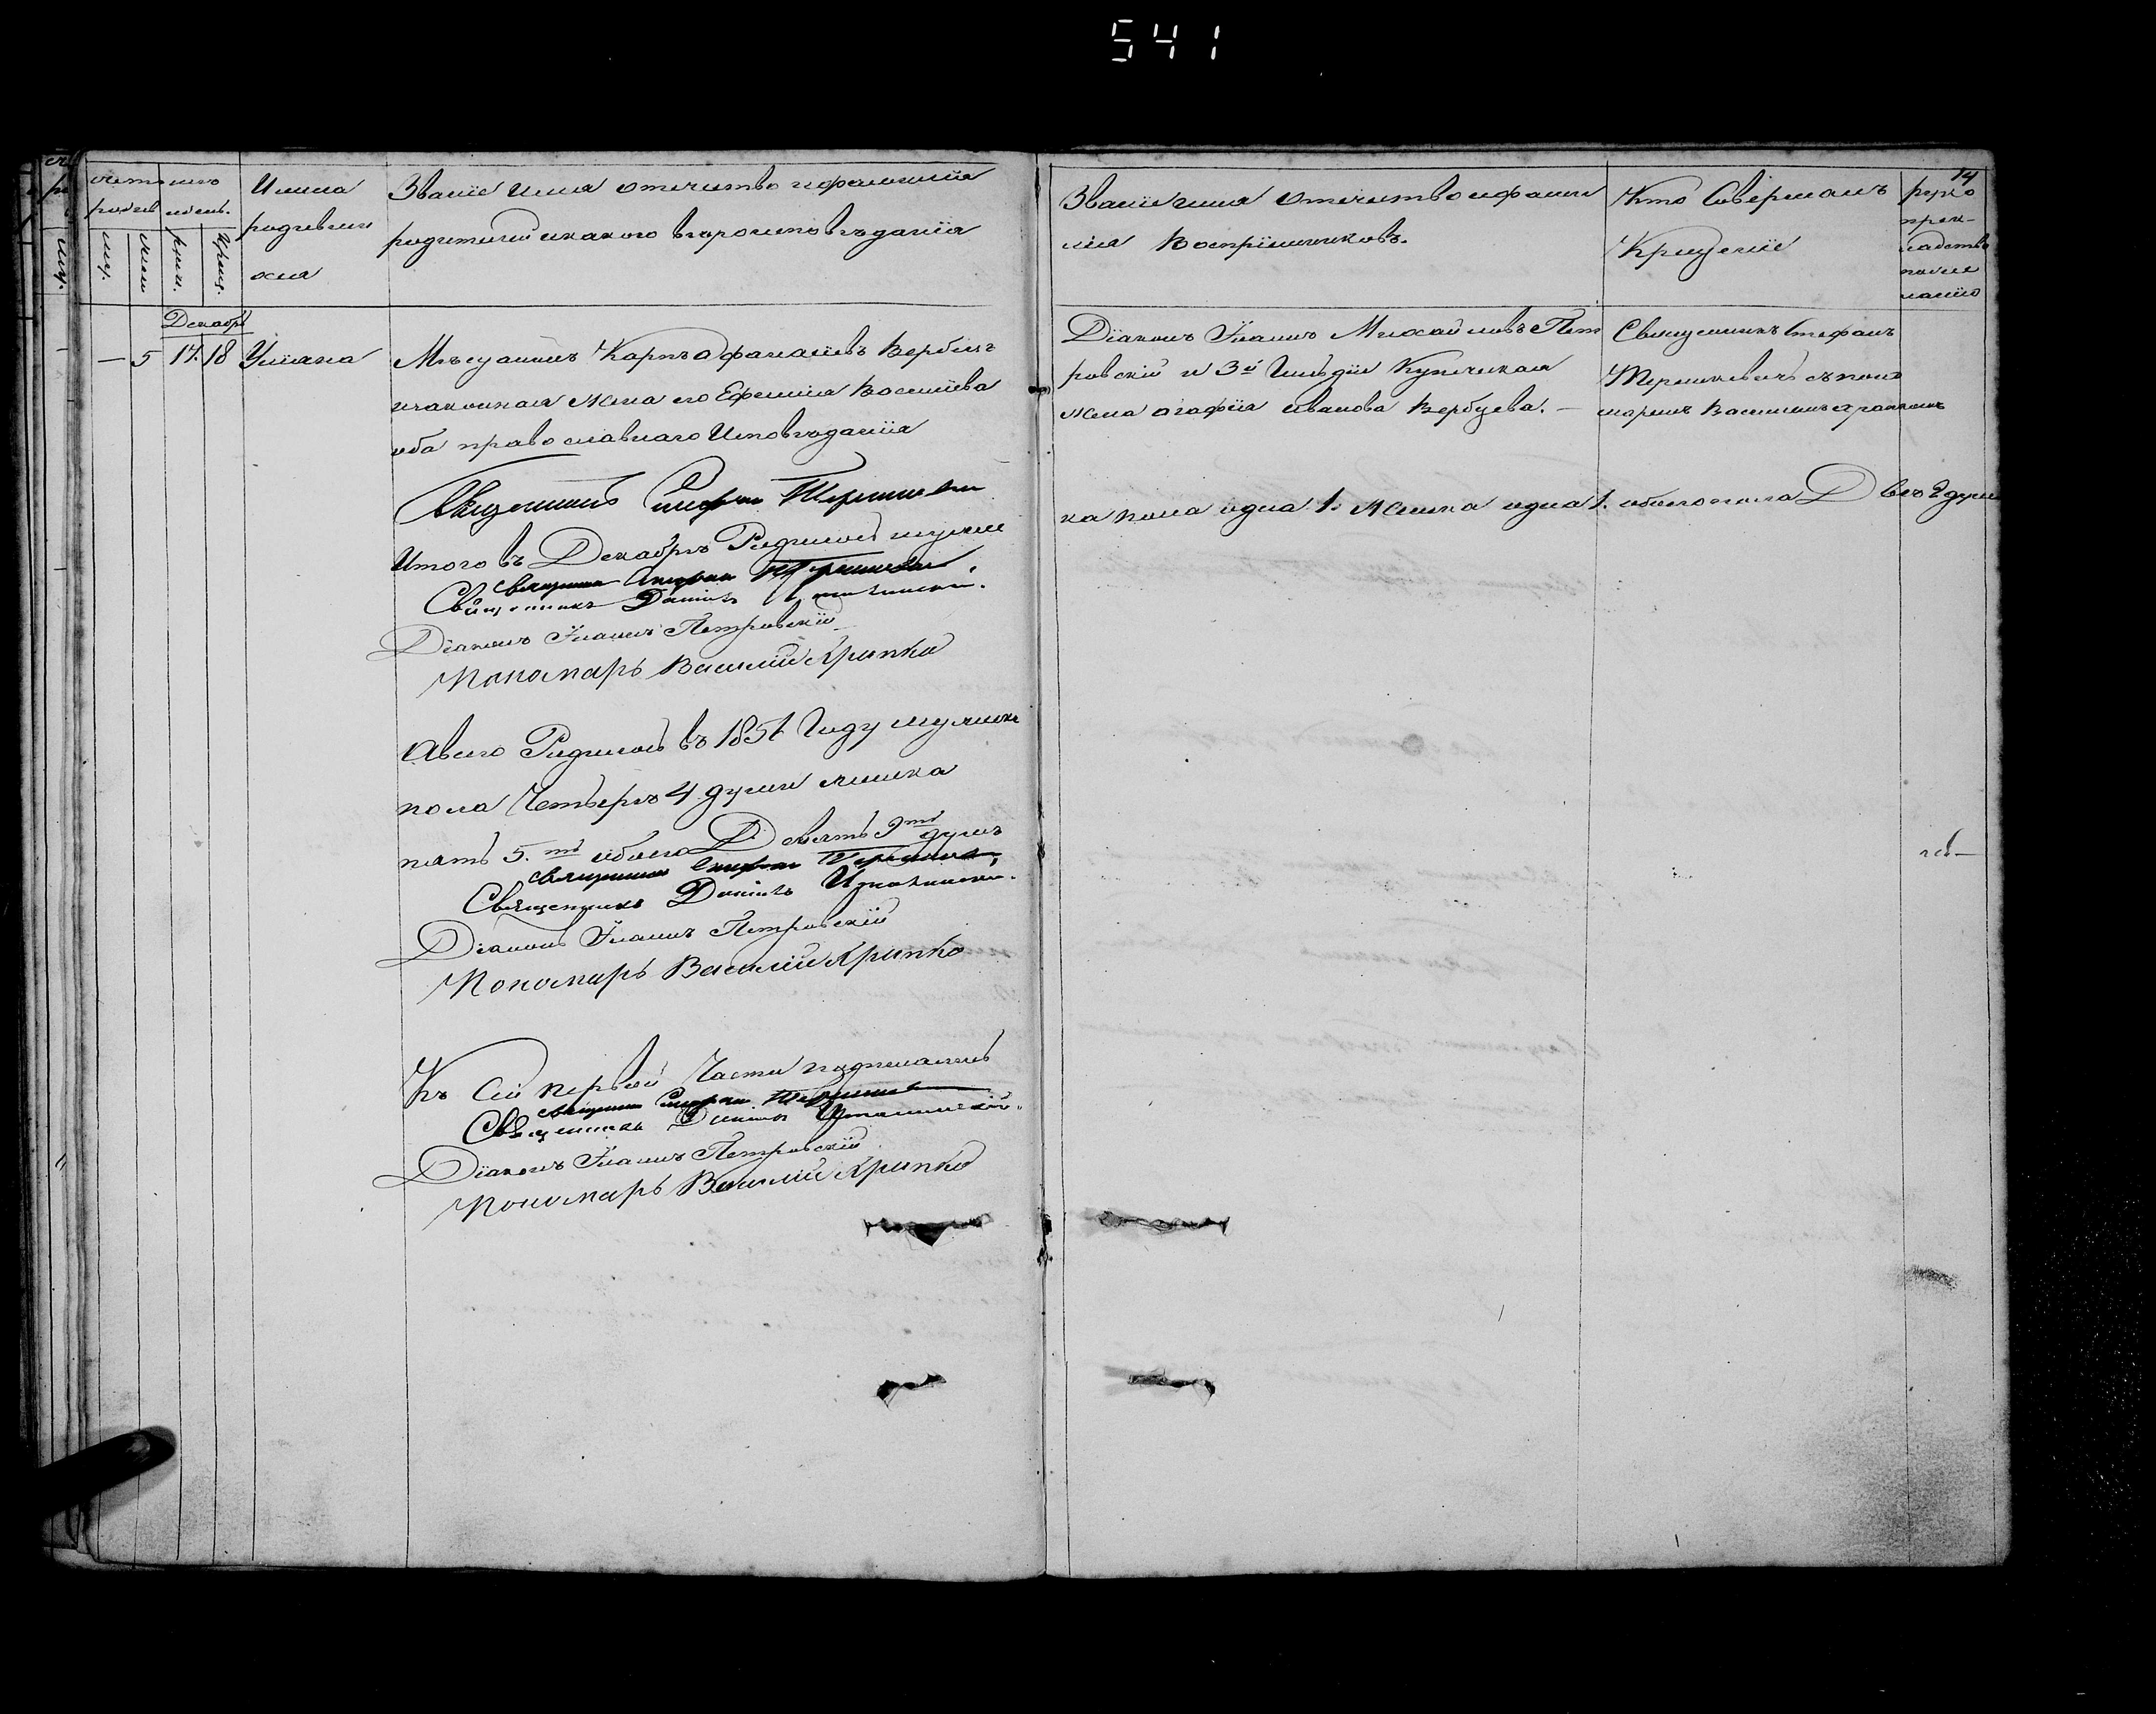 541
14
счетъ ихъ
родив мѣсяц.
муж.
жен
рожд.
крещ.
Имена
родивших
хся
Званіе имя отечество и фамилія
родителей и какого вѣроисповѣданія
Званіе имя отечество и фами
лія Воспріимниковъ.
Кто Совершалъ
Крещеніе
руко
прик-
ладство
по жел
ланію
Декабрь
— 5 17. 18 Уліана
Мѣщанинъ Карпъ Афанасіевъ Вербицъ
и законная жена его Ефимія Василіева
оба православнаго Исповѣданія
Діаконъ Іоаннъ Михайловъ Пет
ровскій и 3й Гильдіи Купеческая
жена Агафія Иванова Вербцева. —
Священникъ Стефанъ
Терешкевичъ съ поно
маремъ Василіемъ Крапкомъ
Священникъ Стефан Терешкевич
Итого въ Декабрѣ Родилось мужес
ка пола одна 1. Женска одна 1. обоего пола Двѣ 2 души
Священник Стефан Терешкевич
Священникъ Даніилъ
Діаконъ Іоаннъ Петровскій
Пономарь Василій Крапко
А всего Родилось въ 1851 Году мужеска
пола Четыре 4 души женска
пять 5.ть обоего Девять 9ть душъ
Священник Стефан Терешкевич
Священникъ Даніилъ
Діаконъ Іоаннъ Петровскій
Пономарь Василій Крапко
Къ Сей первой Части подписались
Священник Стефан Терешкевич
Священникъ Даніилъ
Діаконъ Іоаннъ Петровскій
Пономарь Василій Крапко